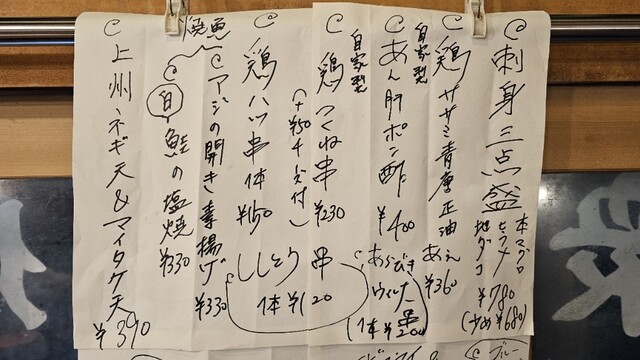 刺身三点盛
本マグロ
ヒラメ
地ダコ
¥780
(少め¥680)
鶏ササミ青唐正油あえ
¥360
自家型
あん肝ポン酢
¥400
あらびきウィンナー串
(1本¥200)
自家型
鶏つくね串
¥230
(+¥50チーズ付)
鶏ハツ串
1本¥150
ししとう串
1本¥120
焼魚
アジの開き素揚げ
¥330
自
鮭の塩焼
¥330
上州ネギ天&マイタケ天
¥390